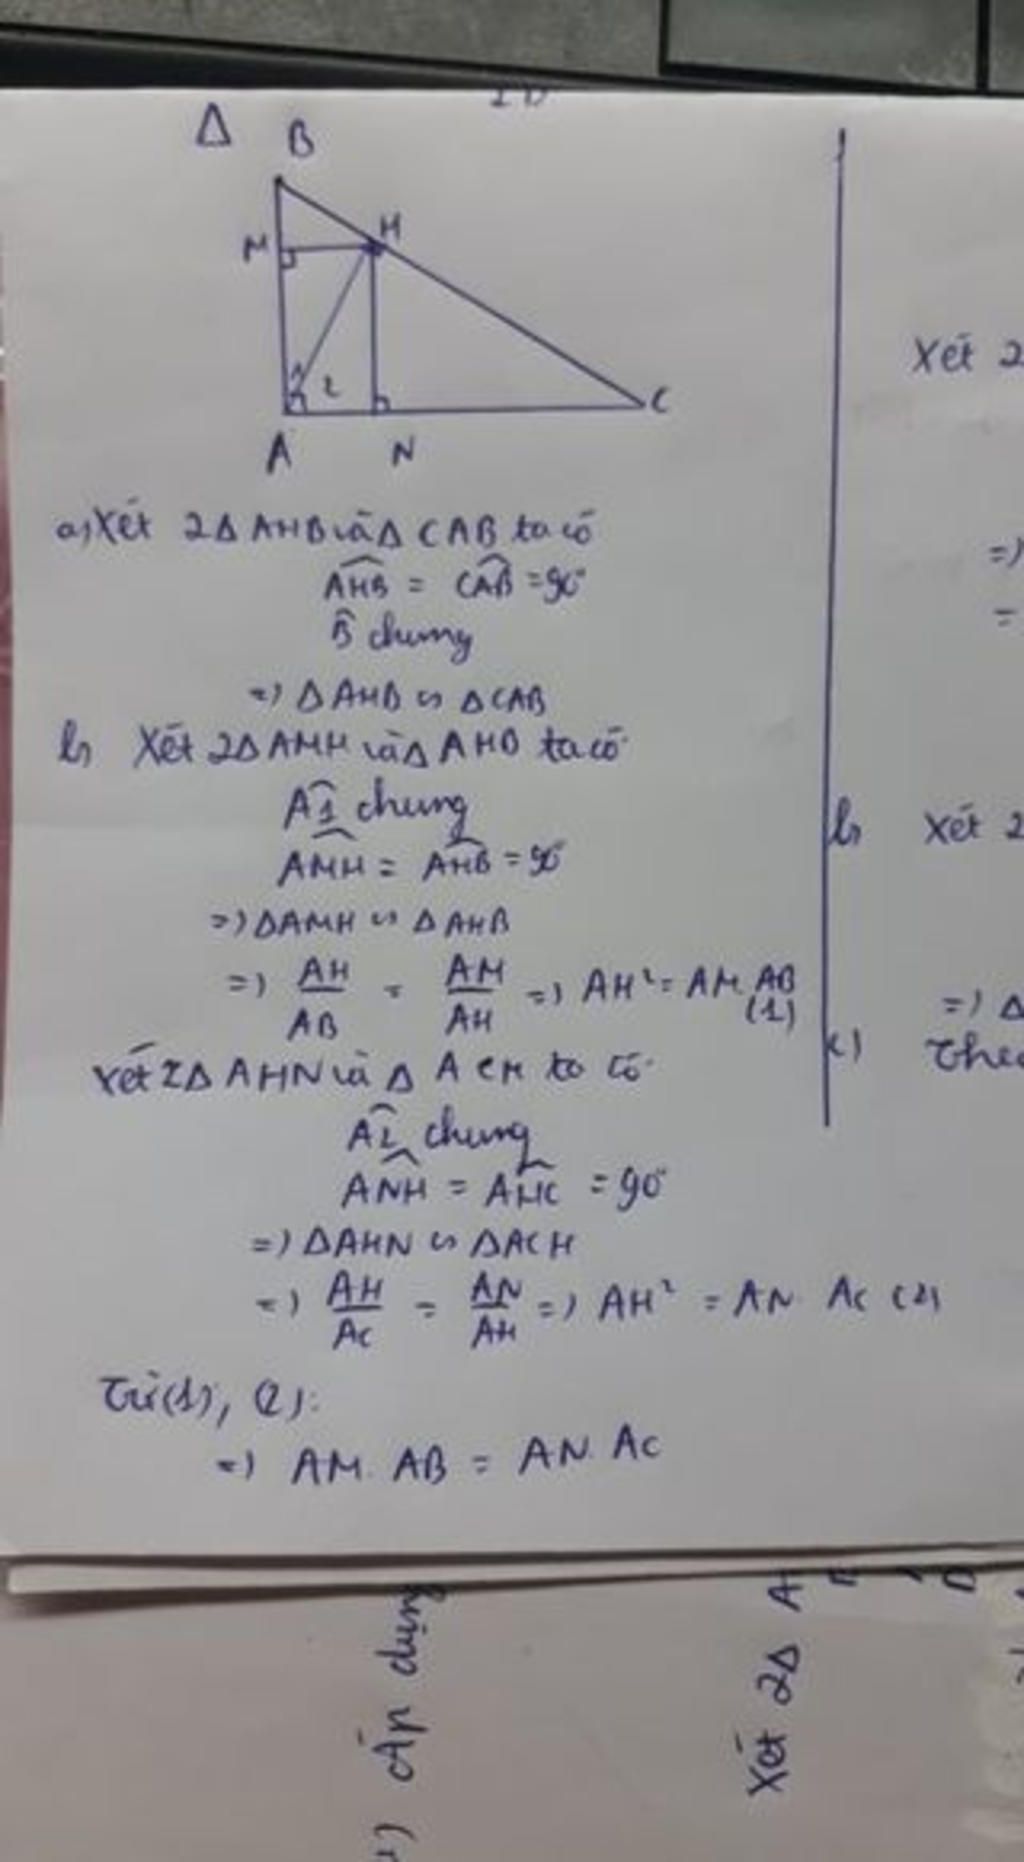 Δ B
M H
1 2
C
A N
a, Xét 2Δ AHB và Δ CAB ta có
AHB = CAB = 90°
B̂ chung
=) Δ AHB ∽ Δ CAB
b, Xét 2Δ AMH và Δ AHB ta có
Â1 chung
AMH = AHB = 90°
=) ΔAMH ∽ Δ AHB
=) AH/AB = AM/AH =) AH² = AM. AB (1)
Xét 2Δ AHN và Δ ACH ta có
Â2 chung
ANH = AHC = 90°
=) ΔAHN ∽ ΔACH
=) AH/AC = AN/AH =) AH² = AN. AC (2)
Từ (1), (2):
=) AM. AB = AN. AC
Xét 2
=)
=
b, Xét 2
=) Δ
c)
Áp dụng
Xét 2Δ A